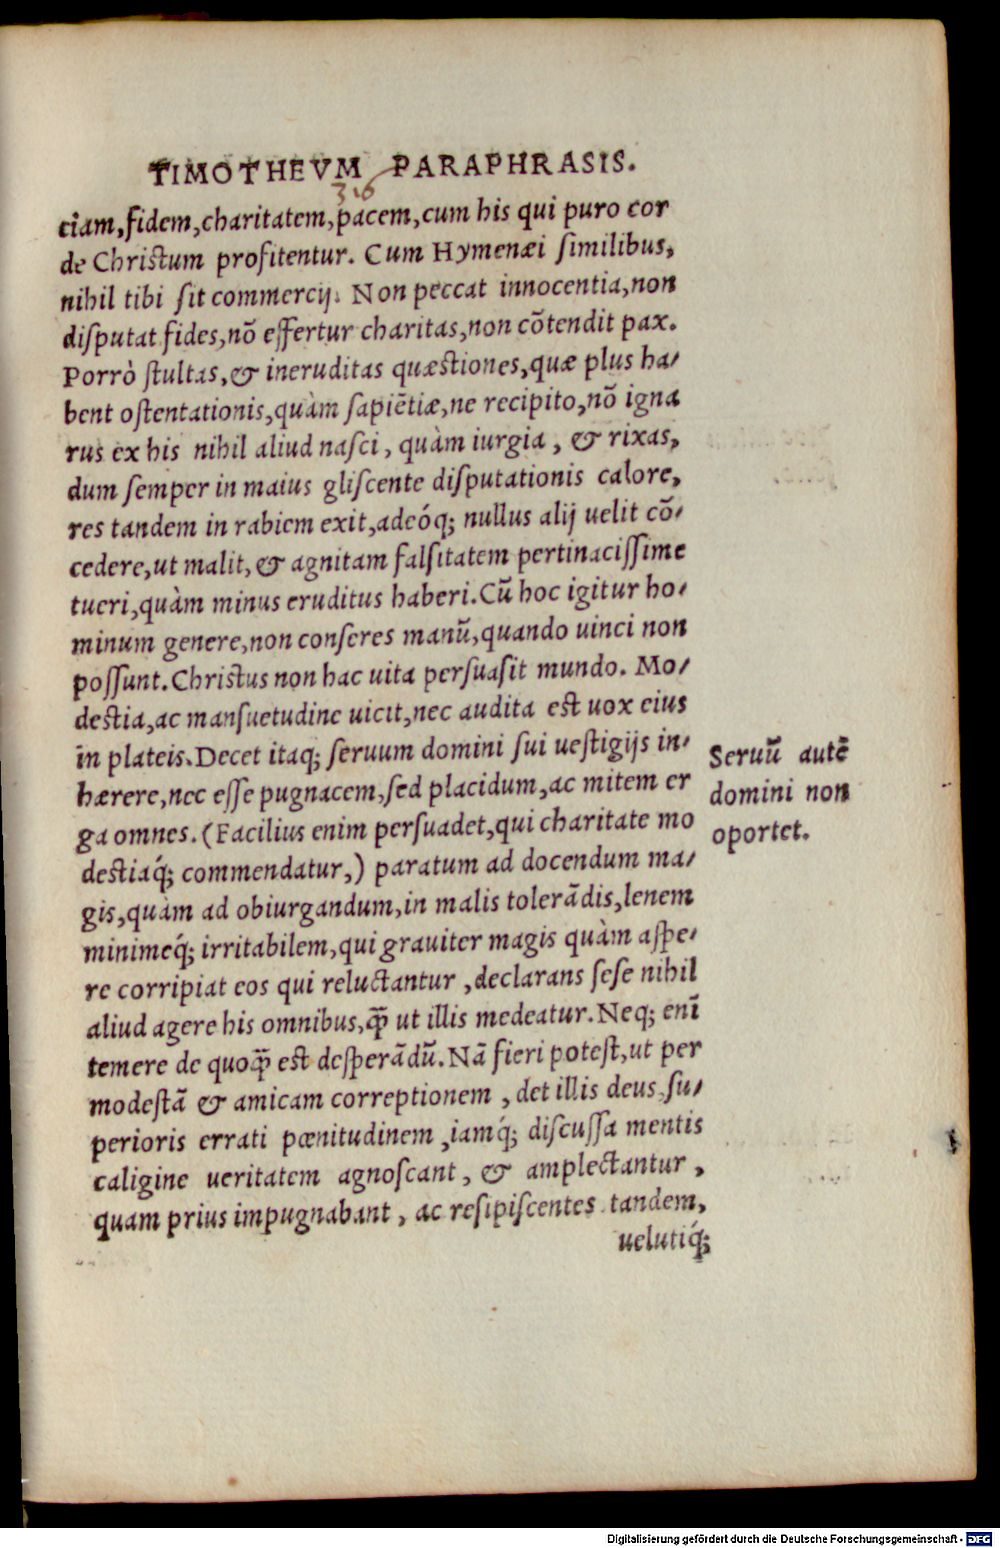 TIMOTHEVM PARAPHRASIS.
316
ciam, fidem, charitatem, pacem, cum his qui puro cor
de Christum profitentur. Cum Hymenæi similibus,
nihil tibi sit commercij. Non peccat innocentia, non
disputat fides, nõ effertur charitas, non cõtendit pax.
Porrò stultas, & ineruditas quæstiones, quæ plus ha/
bent ostentationis, quàm sapiẽtiæ, ne recipito, nõ igna
rus ex his nihil aliud nasci, quàm iurgia, & rixas,
dum semper in maius gliscente disputationis calore,
res tandem in rabiem exit, adeóq; nullus alij uelit cõ/
cedere, ut malit, & agnitam falsitatem pertinacissime
tueri, quàm minus eruditus haberi. Cũ hoc igitur ho/
minum genere, non conseres manũ, quando uinci non
possunt. Christus non hac uita persuasit mundo. Mo/
destia, ac mansuetudine uicit, nec audita est uox eius
in plateis. Decet itaq; seruum domini sui uestigijs in/
hærere, nec esse pugnacem, sed placidum, ac mitem er
ga omnes. (Facilius enim persuadet, qui charitate mo
destiaq́; commendatur,) paratum ad docendum ma/
gis, quàm ad obiurgandum, in malis tolerãdis, lenem
minimeq́; irritabilem, qui grauiter magis quàm aspe/
re corripiat eos qui reluctantur, declarans sese nihil
aliud agere his omnibus, q̃ ut illis medeatur. Neq; enĩ
temere de quoq̃ est desperãdũ. Nã fieri potest, ut per
modestã & amicam correptionem, det illis deus, su/
perioris errati pœnitudinem, iamq́; discussa mentis
caligine ueritatem agnoscant, & amplectantur,
quam prius impugnabant, ac resipiscentes tandem,
uelutiq́;
Seruũ autẽ
domini non
oportet.
Digitalisierung gefördert durch die Deutsche Forschungsgemeinschaft - DFG